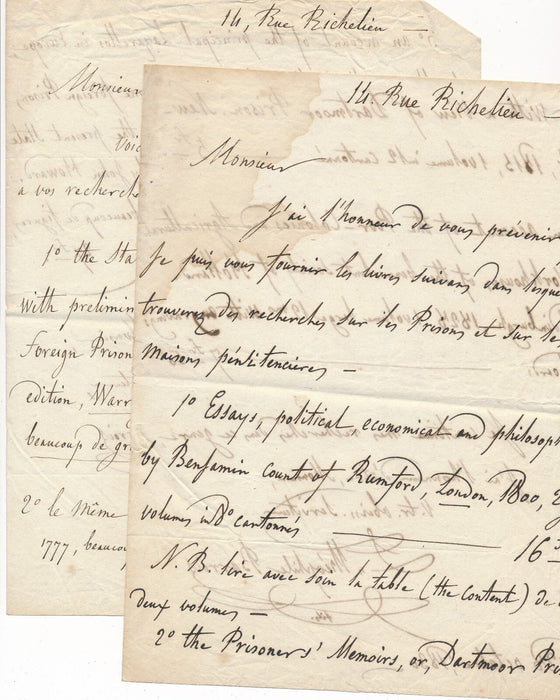 14, Rue Richelieu —
Monsieur
Voic
à vos recherch
1º the Sta
with prelimin
Foreign Prison
edition, Warr
beaucoup de gr
2º le même
1777, beaucou
14 Rue Richelieu —
Monsieur
J'ai l'honneur de vous préveni
Je puis vous fournir les livres suivans dans lesqu
trouverez des recherches sur les Prisons et sur le
maisons pénitencières —
1º Essays, political, economical and philosoph
by Benjamin count of Rumford, London, 1800, 2
volumes in 8º cartonnés — 16
N.B. lire avec soin la table (the content) de
deux volumes —
2º the Prisoners' Memoirs, or, Dartmoor Pri